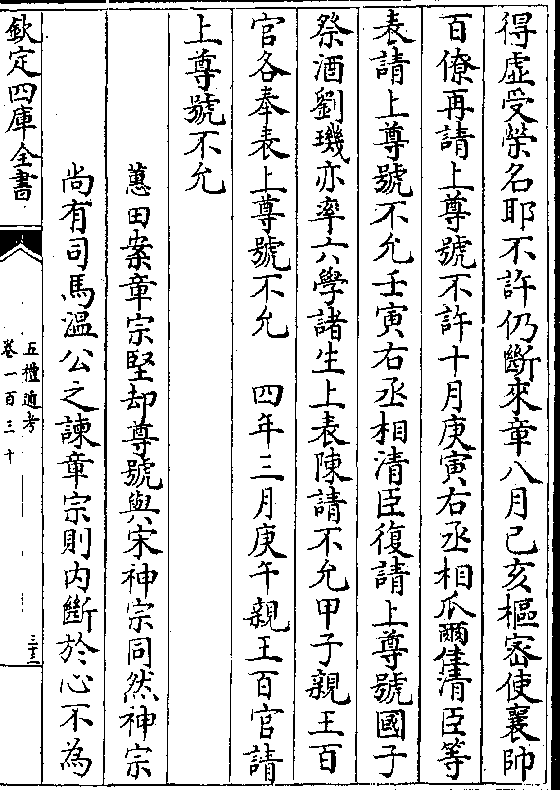 得虛受榮名耶不許仍斷來章八月己亥樞密使襄帥
百僚再請上尊號不許十月庚寅右丞相瓜爾佳清臣等
表請上尊號不允壬寅右丞相清臣復請上尊號國子
祭酒劉璣亦率六學諸生上表陳請不允甲子親王百
官各奉表上尊號不允　四年三月庚午親王百官請
上尊號不允
蕙田案章宗堅却尊號與宋神宗同然神宗
尚有司馬溫公之諫章宗則內斷於心不為
欽定四庫全書
五禮通考
卷一百三十
三十二